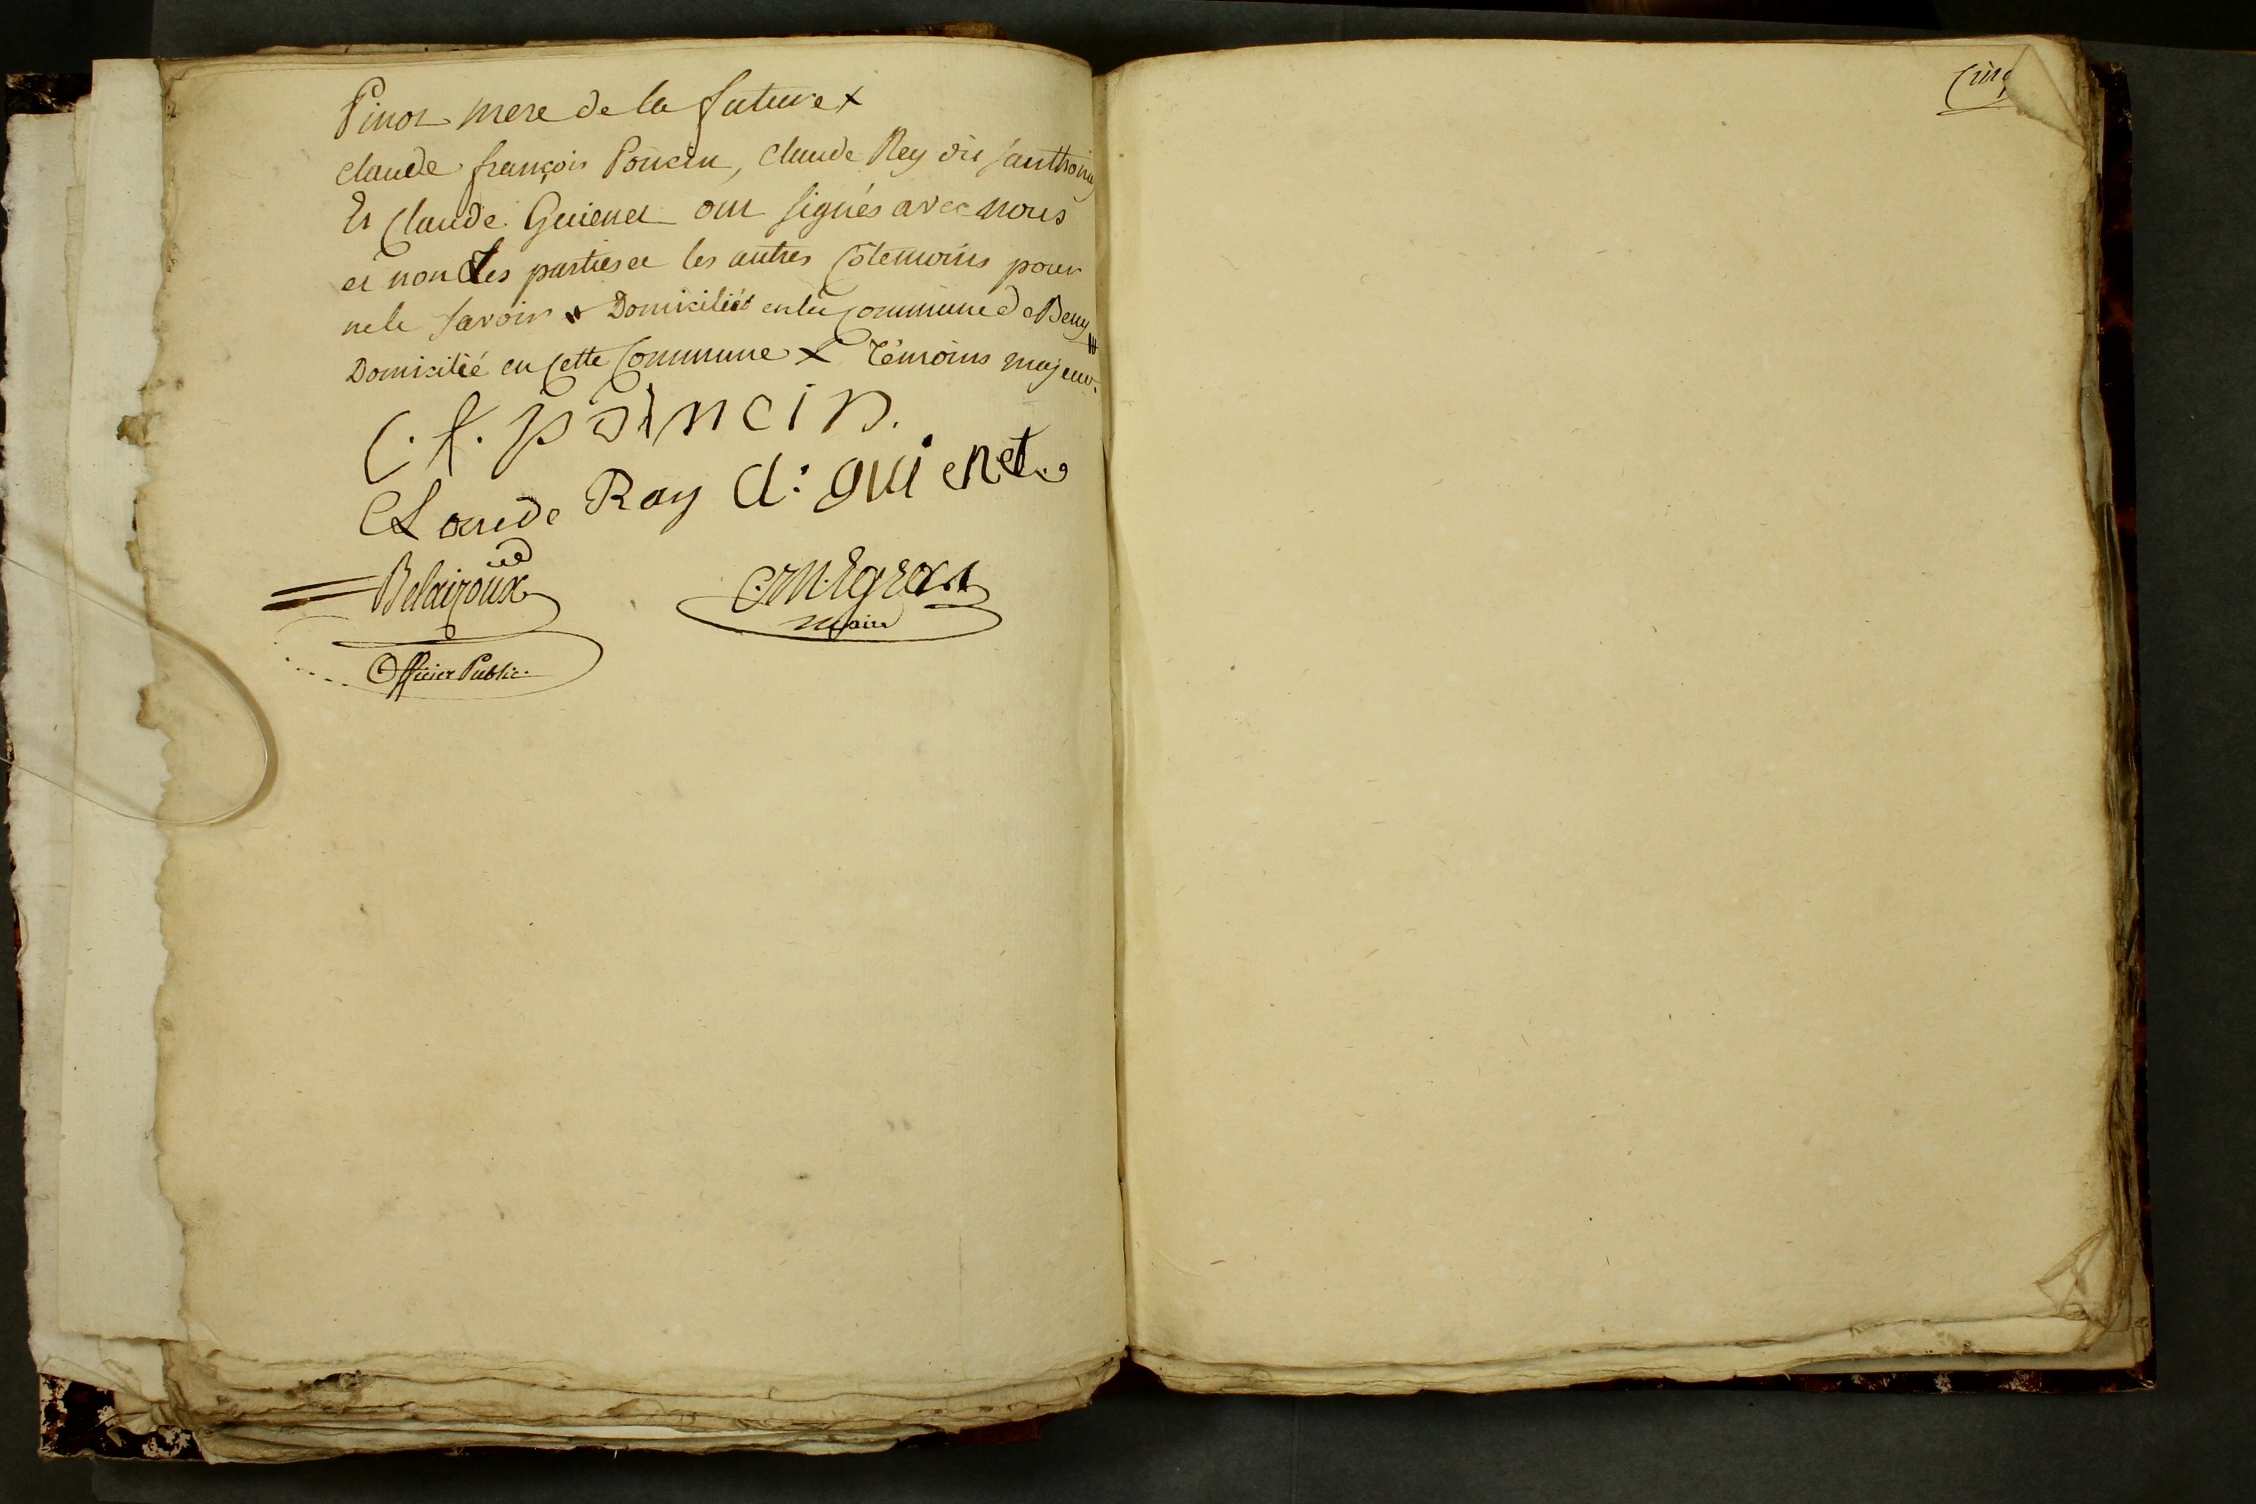 Pinot mere de la future x
claude françois Poncin, Claude Rey dit Janthoine
Et Claude Guienet ont signés avec nous
et non les parties et les autres Cotemoins pour
ne le savoir # Domiciliés en la Commune de Beny
Domicilié en cette Commune x Témoins majeur.
C. f. poncin.
Claude Ray Cl: guienet
Belairoux C. M. Egraz
maire
Officier Public.
Cinq